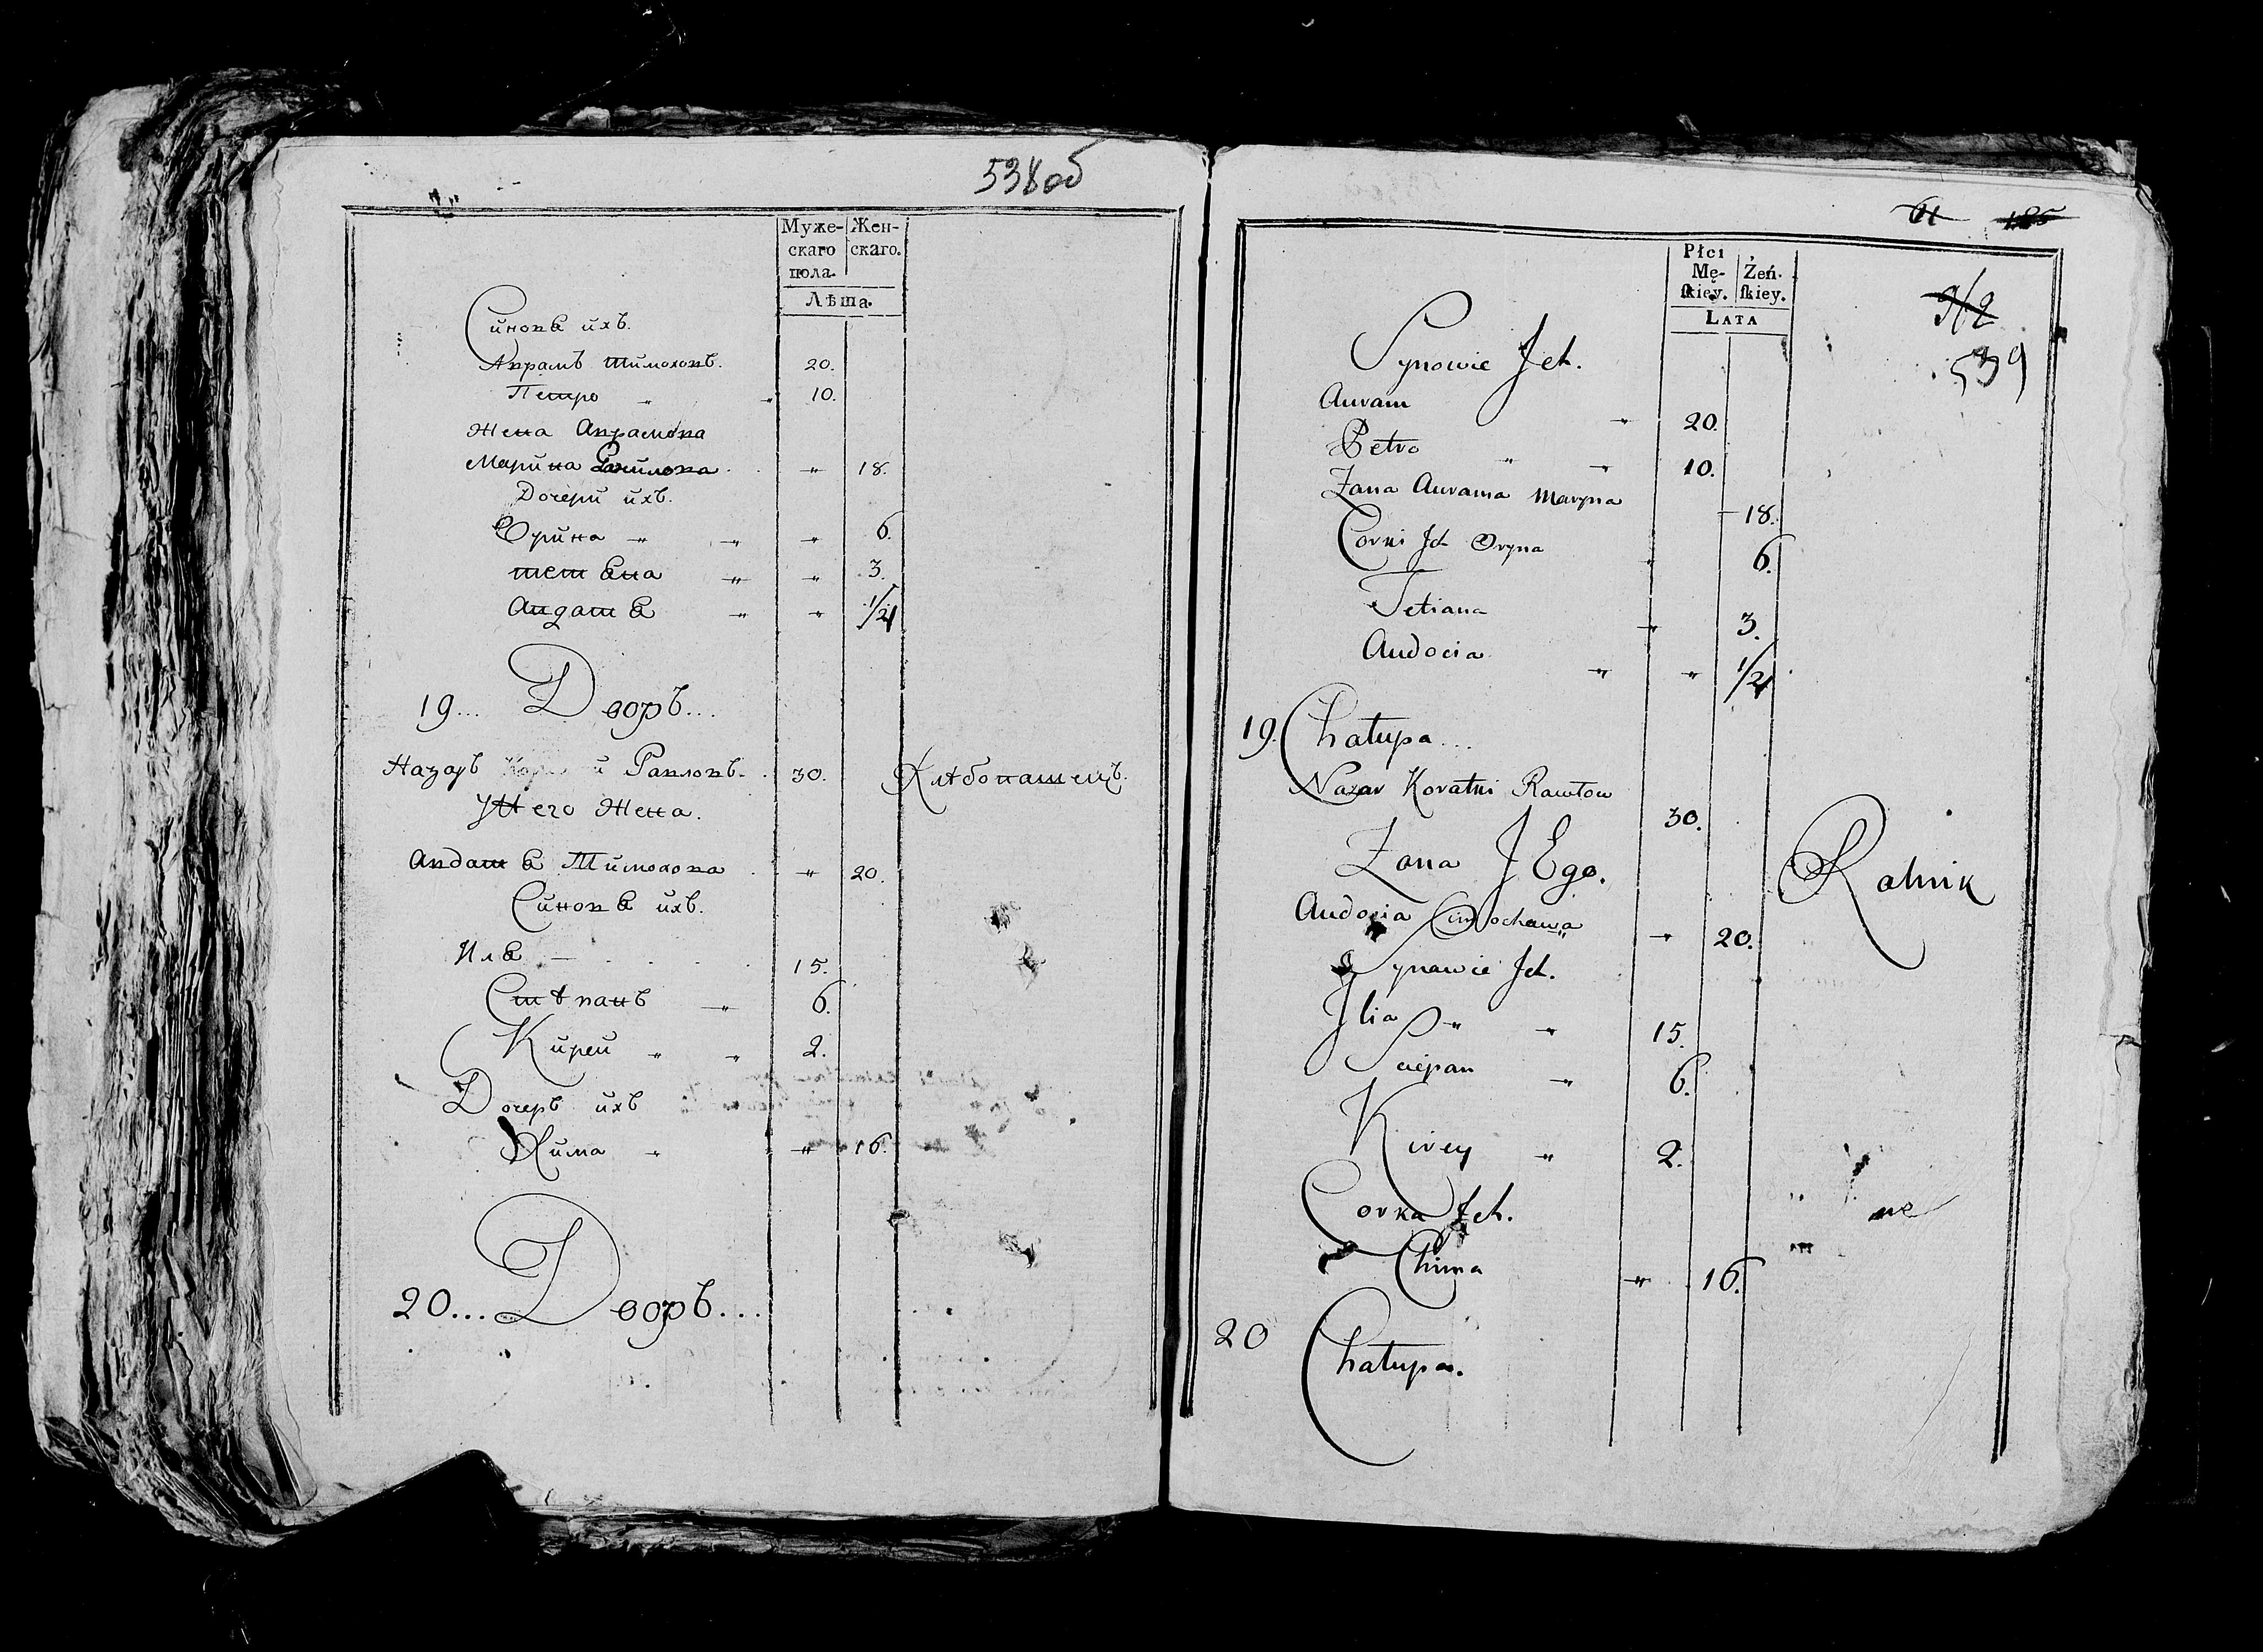 538 об
Муже- Жен-
скаго скаго.
пола.
Лѣта.
Синовѣ ихъ.
Аврамъ Тимоховъ. 20.
Петро „ „ 10.
Жена Аврамова
Марина . „ 18.
Дочери ихъ.
Орина „ „ „ 6.
Тетѣна „ „ 3.
Авдотѣ „ „ 1/2
19... Дворъ...
Назаръ Равловъ. 30. Хлѣбопашецъ.
У Него Жена.
Авдотѣ Тимохова . „ 20.
Синовѣ ихъ.
Илѣ — 15.
Стѣпанъ „ 6.
Кирей „ „ 2.
Дочеръ ихъ
Хима „ „ 16.
20... Дворъ...
61 185
Płci
Mę- Żeń.
ſkiey. ſkiey.
LATA
539
Synowie Ich.
Auram „ 20.
Petro „ „ 10.
Zana Aurama Maryna 18.
Corki Ich Oryna „ 6.
Tetiana „ 3.
Audocia „ „ 1/2
19. Chałupa...
Nazar Koratki Rawłow 30.
Zona J Ego. Rolnik
Audocia Cimochawa „ 20.
Synawie Ich.
Ilia „ „ 15.
Sciepan „ 6.
Kirey „ 2.
Corka Ich. не
Chima „ 16.
20 Chałupa.